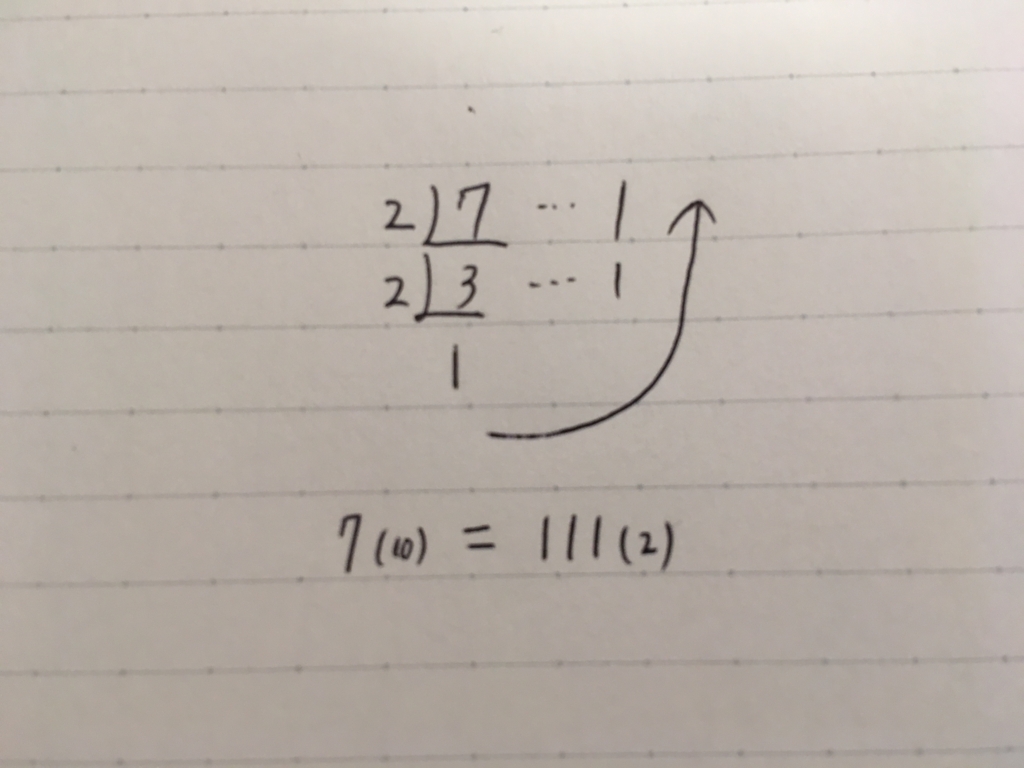 2)7 ... 1
2)3 ... 1
1
7(10) = 111(2)